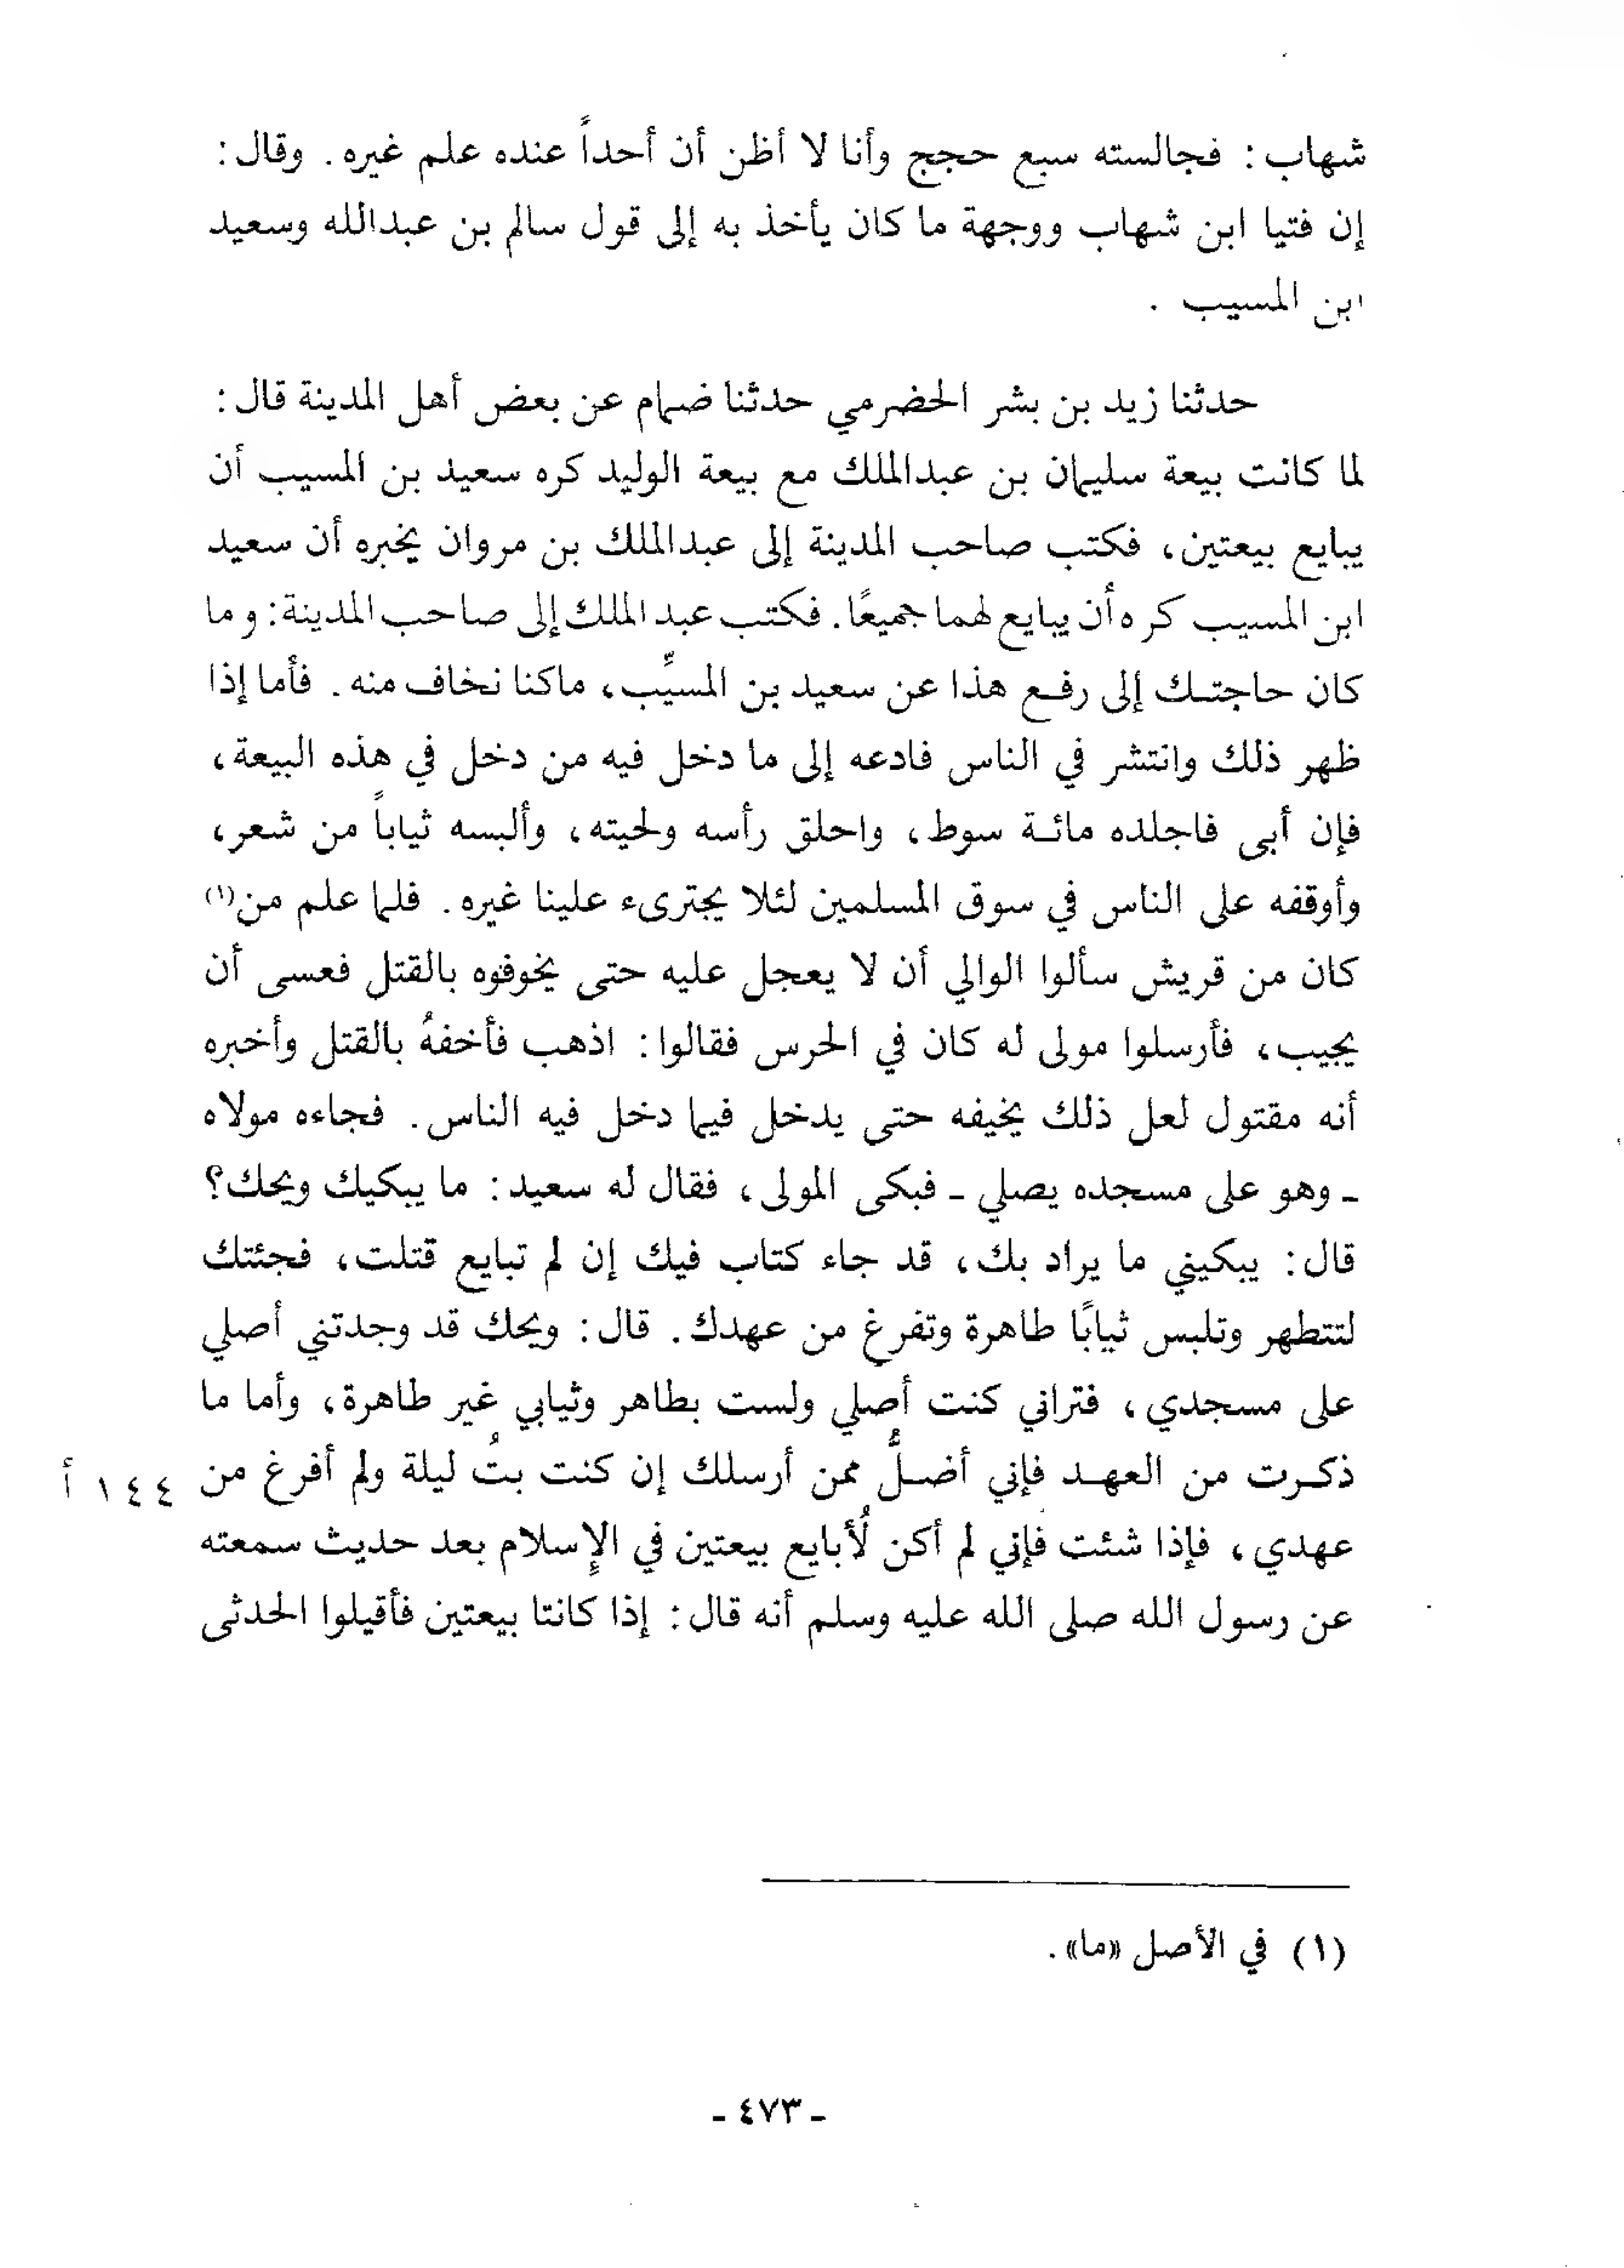 شهاب: فجالسته سبع حجج وأنا لا أظن أن أحداً عنده علم غيره. وقال:
إن فتيا ابن شهاب ووجهة ما كان يأخذ به إلى قول سالم بن عبدالله وسعيد
ابن المسيب .
حدثنا زيد بن بشر الحضرمي حدثنا ضمام عن بعض أهل المدينة قال:
لما كانت بيعة سليمان بن عبدالملك مع بيعة الوليد كره سعيد بن المسيب أن
يبايع بيعتين، فكتب صاحب المدينة إلى عبدالملك بن مروان يخبره أن سعيد
ابن المسيب كره أن يبايع لهما جميعًا. فكتب عبد الملك إلى صاحب المدينة: وما
كان حاجتك إلى رفع هذا عن سعيد بن المسيِّب، ماكنا نخاف منه. فأما إذا
ظهر ذلك وانتشر في الناس فادعه إلى ما دخل فيه من دخل في هذه البيعة،
فإن أبى فاجلده مائة سوط، واحلق رأسه ولحيته، وألبسه ثياباً من شعر،
وأوقفه على الناس في سوق المسلمين لئلا يجترىء علينا غيره. فلما علم من(١)
كان من قريش سألوا الوالي أن لا يعجل عليه حتى يخوفوه بالقتل فعسى أن
يجيب، فأرسلوا مولى له كان في الحرس فقالوا: اذهب فأخفهُ بالقتل وأخبره
أنه مقتول لعل ذلك يخيفه حتى يدخل فيما دخل فيه الناس. فجاءه مولاه
ـ وهو على مسجده يصلي ـ فبكى المولى، فقال له سعيد: ما يبكيك ويحك؟
قال: يبكيني ما يراد بك، قد جاء كتاب فيك إن لم تبايع قتلت، فجئتك
لتتطهر وتلبس ثيابًا طاهرة وتفرغ من عهدك. قال: ويحك قد وجدتني أصلي
على مسجدي، فتراني كنت أصلي ولست بطاهر وثيابي غير طاهرة، وأما ما
ذكرت من العهد فإني أضلُّ ممن أرسلك إن كنت بتُ ليلة ولم أفرغ من
١٤٤ أ
عهدي، فإذا شئت فإني لم أكن لُأبايع بيعتين في الإِسلام بعد حديث سمعته
عن رسول الله صلى الله عليه وسلم أنه قال: إذا كانتا بيعتين فأقيلوا الحدثى
(١) في الأصل «ما».
ـ ٤٧٣ ـ